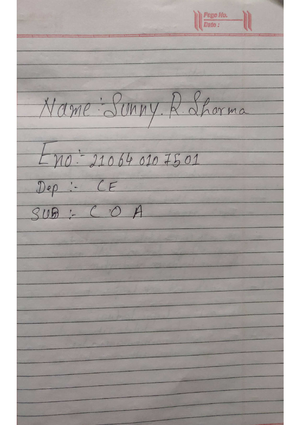 Page No.
Date :
Name :- Sunny. R. Sharma
Eno :- 210640107501
Dep :- CE
SUB :- C O A